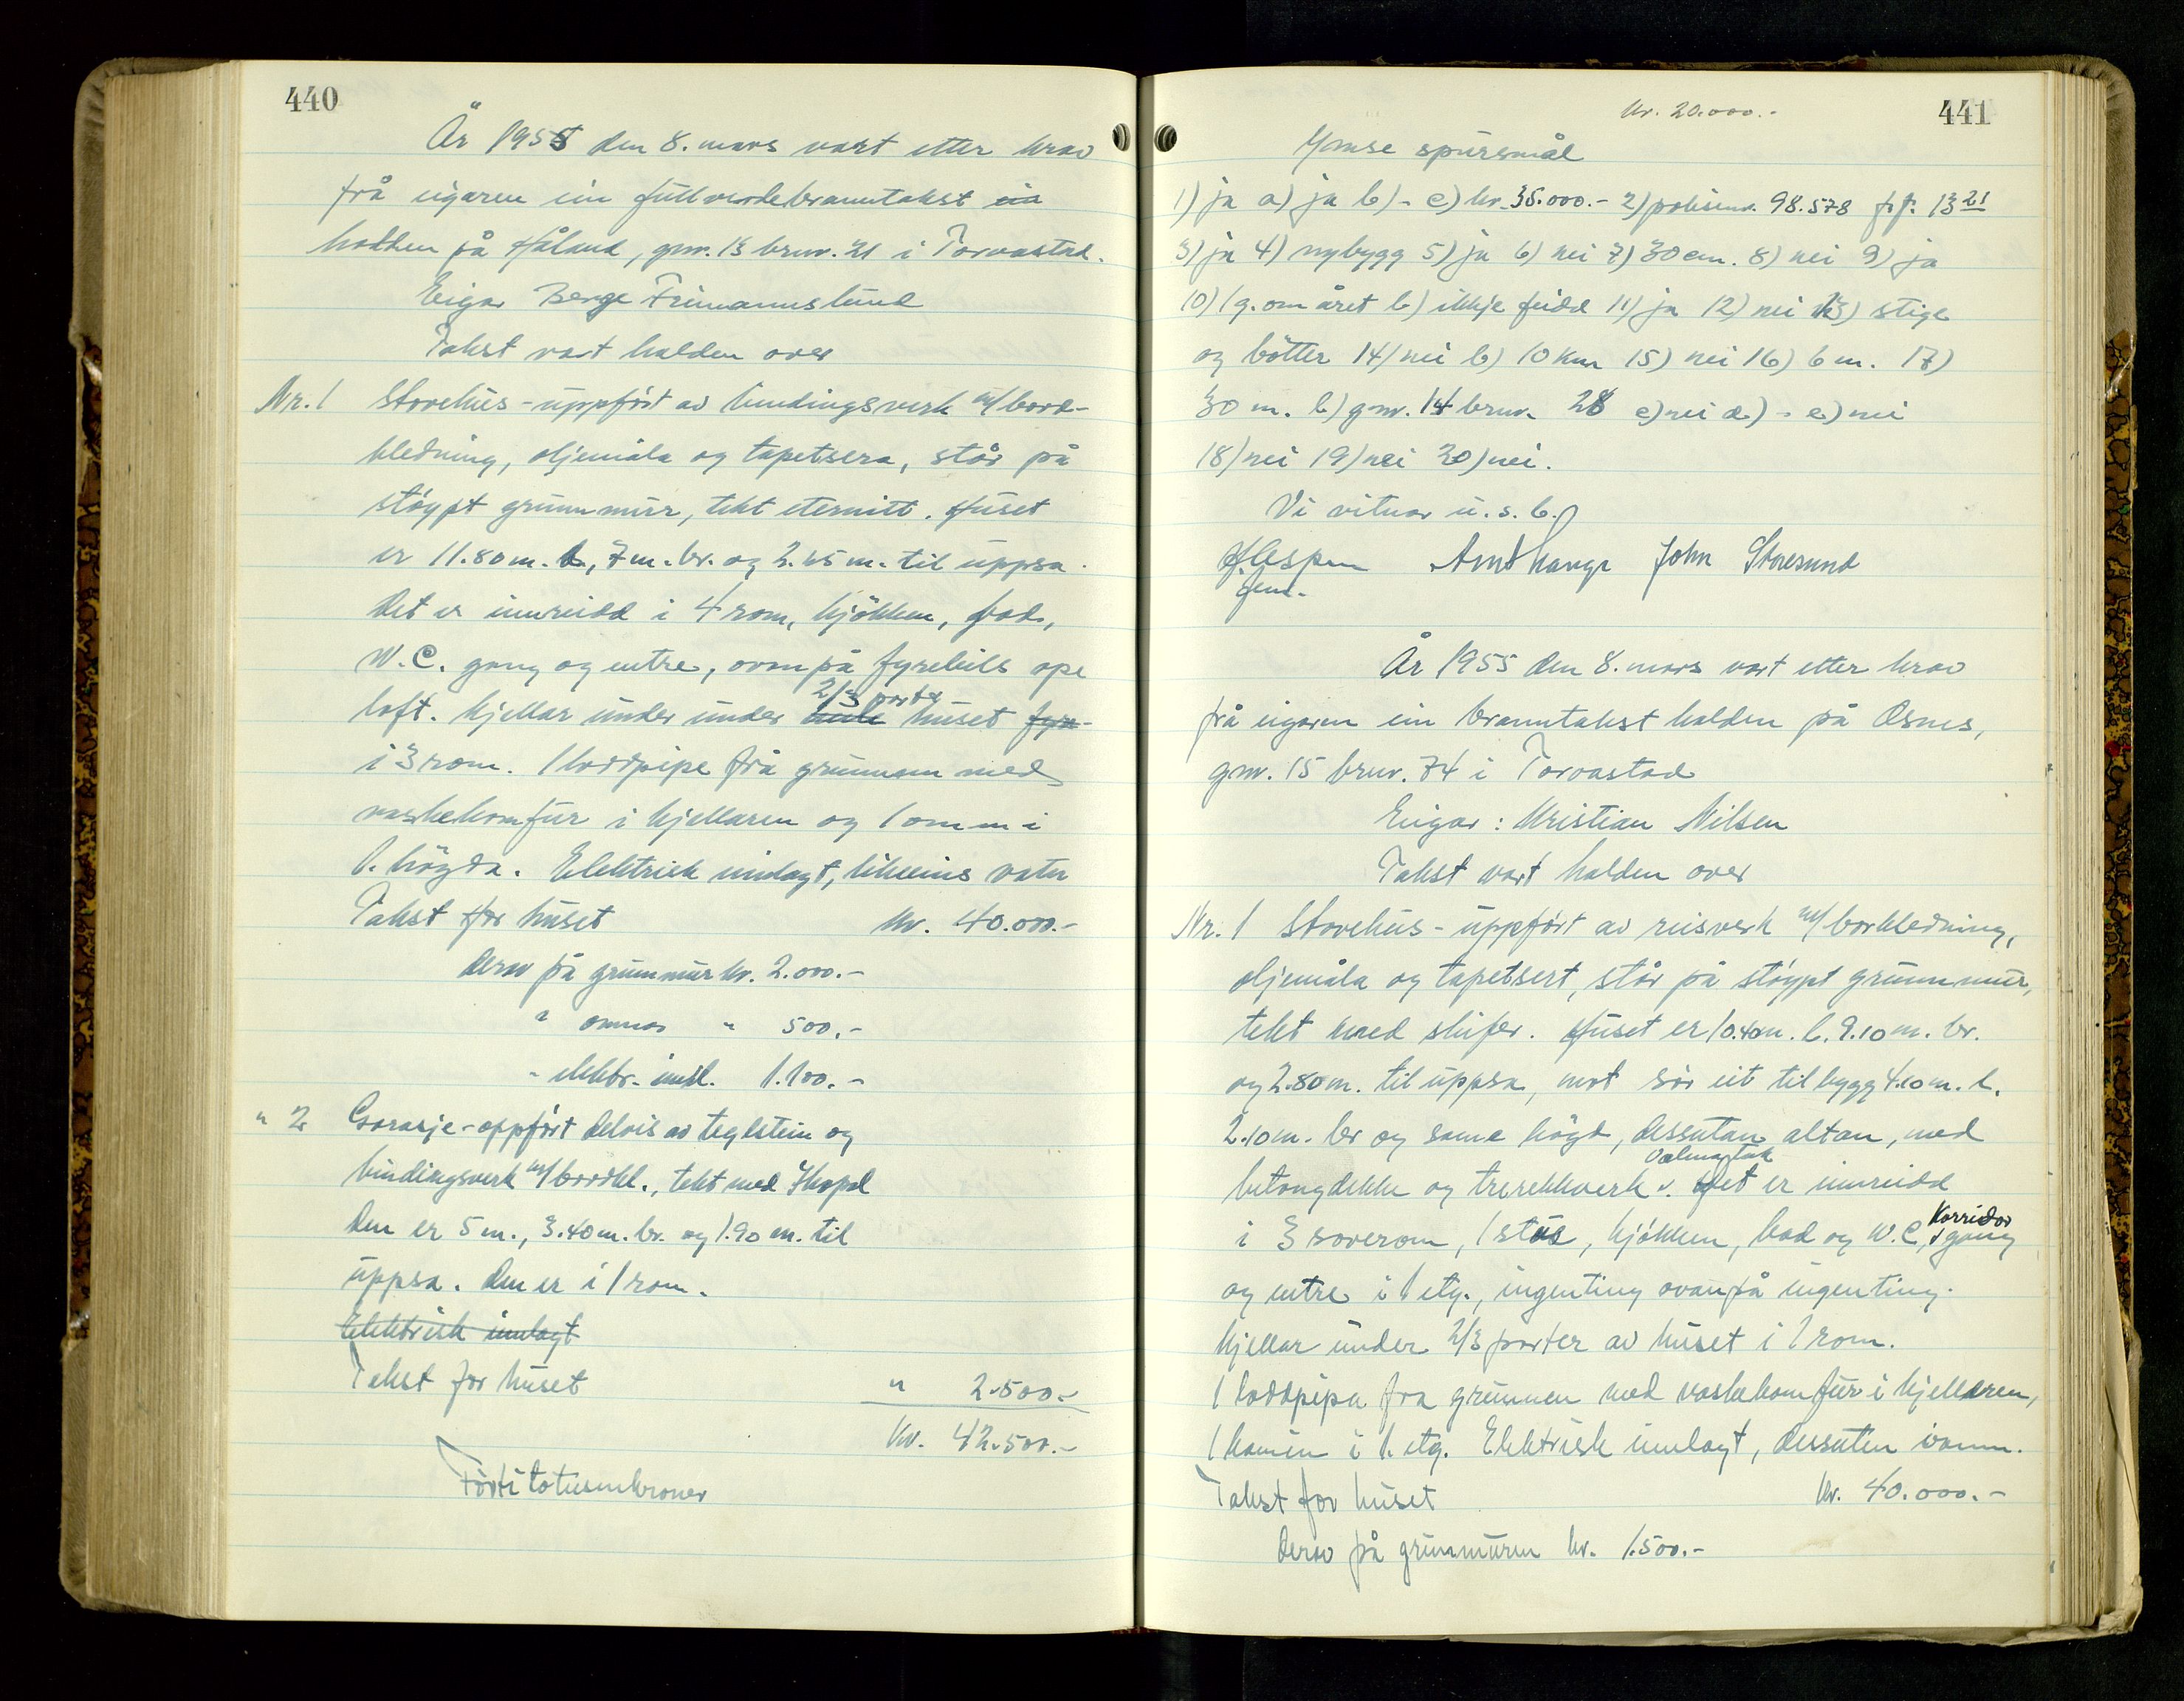 440
År 1955 den 8. mars vart etter krav
frå eigaren ein fullverdebranntakst
halden på Håland, gnr. 13 brnr. 21 i Torvastad.
Eigar Berge Frimannslund
Takst vart halden over
Nr. 1 Stovehus - uppfört av bindingsverk m/bord-
kledning, oljemåla og tapetsera, står på
stöypt grunnmur, tekt eternitt. Huset
er 11.80 m. l., 7 m. br. og 2.65 m. til uppsa.
Det er innreidd i 4 rom, kjökken, bad,
W.C. gang og entre, ovanpå fyrebils ope
2/3 parter
loft. Kjellar under under heile huset fyre-
i 3 rom. 1 loddpipe frå grunnen med
vaskekomfur i kjellaren og 1 omn i
1. högda. Elektrisk innlagt, likeeins vatn
Takst for huset kr. 40.000.-
Derav på grunnmur kr. 2.000.-
" omnar " 500.-
" elektr. innl. 1.100.-
" 2 Garasje - oppfört delvis av teglstein og
bindingsverk m/bordkl., tekt med
Den er 5 m., 3.40 m. br. og 1.90 m. til
uppsa. Den er i 1 rom.
Elektrisk innlagt
Takst for huset " 2.500.-
Kr. 42.500.-
Förtitotusenkroner
kr. 20.000.-
441
Ymse spursmål
1) ja a) ja b) - c) kr. 35.000.- 2) polisenr. 98.578 f.f. 13 21
3) ja 4) nybygg 5) ja 6) nei 7) 30 cm. 8) nei 9) ja
10) 1 g. om året b) ikkje feidd 11) ja 12) nei 13) stige
og bötter 14) nei b) 10 km 15) nei 16) 6 m. 17)
30 m. b) gnr. 14 brnr. 28 c) nei d) - e) nei
18) nei 19) nei 20) nei.
Vi vitnar u.s.b.
H. Espen Arnt Hauge John Storesund
fem.
År 1955 den 8. mars vart etter krav
frå eigaren ein branntakst halden på Osnes,
gnr. 15 brnr. 74 i Torvastad
Eigar: Kristian Nilsen
Takst vart halden over
Nr. 1 Stovehus - uppfört av reisverk m/borkledning,
oljemåla og tapetsert, står på stöypt grunnmur,
tekt med skifer. Huset er 10.40 m. l. 9.10 m. br.
og 2.80 m. til uppsa, mot sör eit tilbygg 4.10 m. l.
2.10 m. br og same högd, dessutan altan, med
Valmatak
betongdekke og trerekkverk v. Det er innreidd
Korridor
i 3 soverom, 1 stås, kjökken, bad og W.C, v gang
og entre i 1 etg., ingenting ovanpå ingenting.
Kjellar under 2/3 parter av huset i 1 rom.
1 loddpipa fra grunnen med vaskekomfur i kjellaren,
1 kamin i 1. etg. Elektrisk innlagt, dessuten vann.
Takst for huset kr. 40.000.-
Derav på grunnmuren kr. 1.500.-